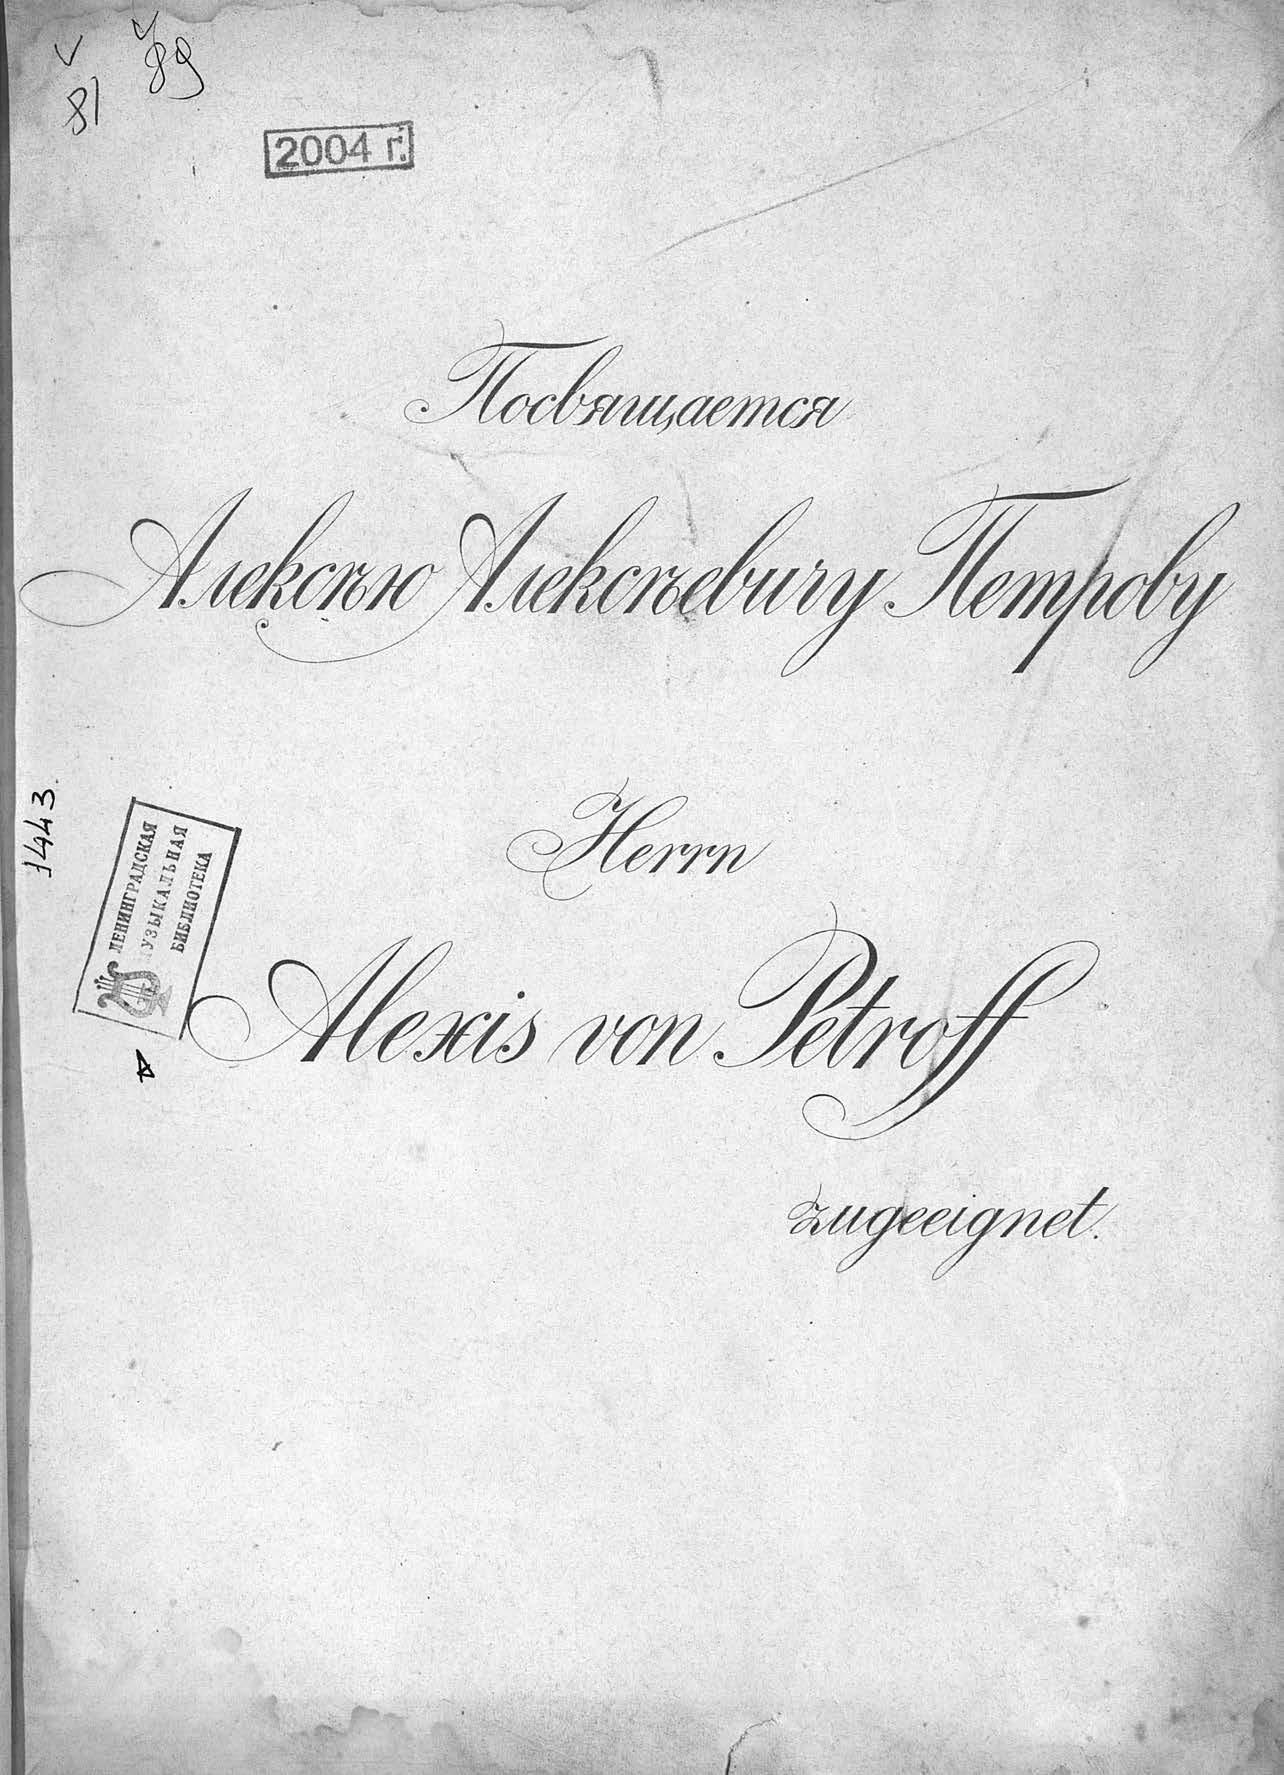 81
89
2004 г.
Посвящается
Алексѣю Алексѣевичу Петрову
1443.
ЛЕНИНГРАДСКАЯ
МУЗЫКАЛЬНАЯ
БИБЛИОТЕКА
Herrn
Alexis von Petroff
zugeeignet.